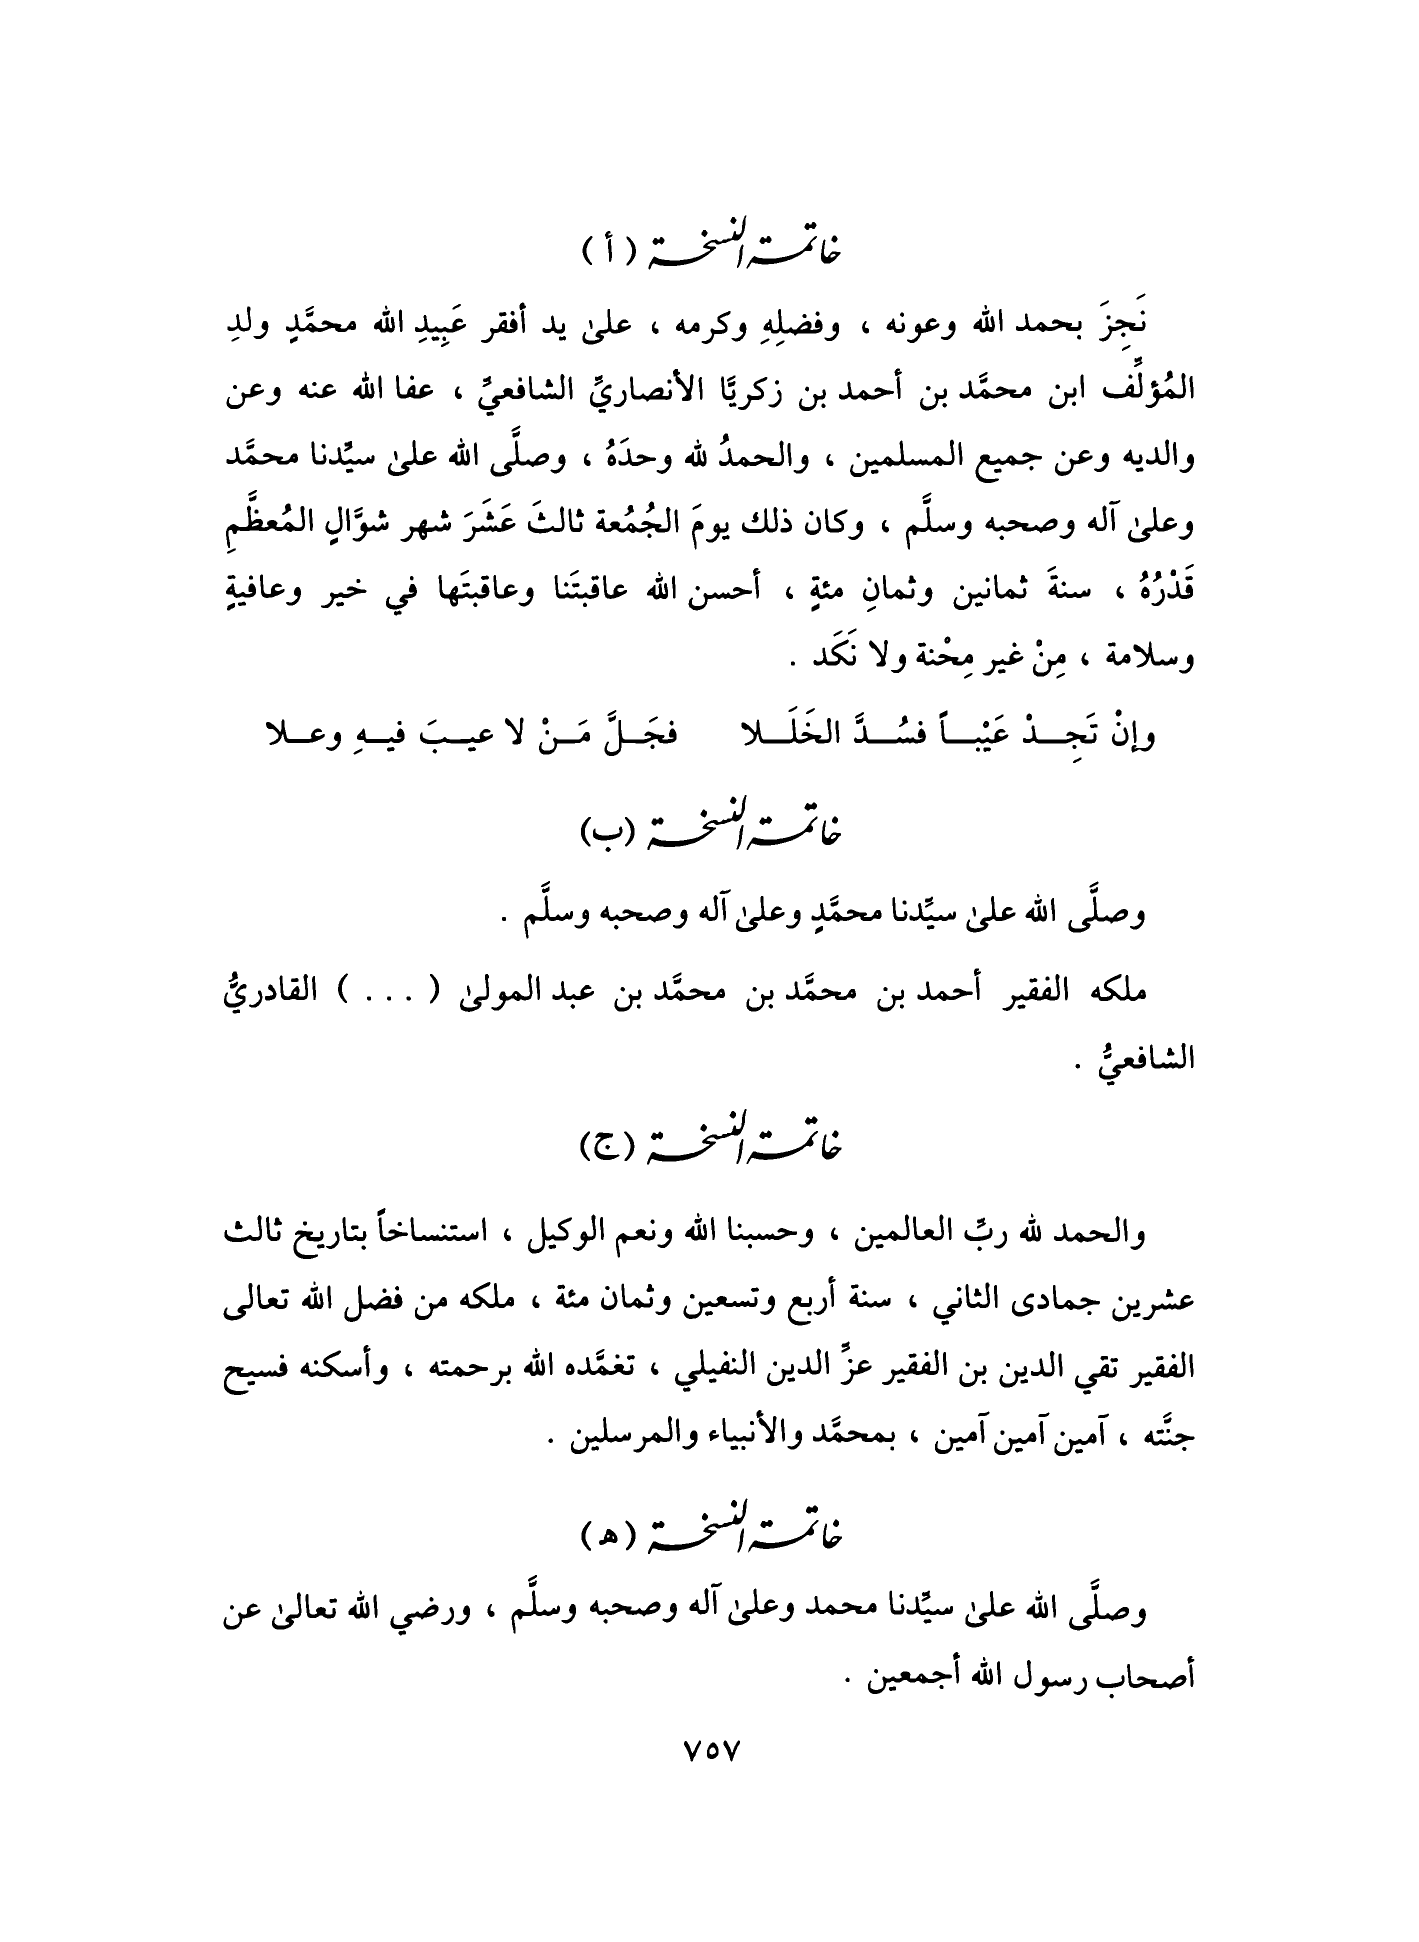 خاتمة النسخة ( أ )
نَجِزَ بحمد الله وعونه ، وفضلِهِ وكرمه ، علىٰ يد أفقر عَبِيدِ الله محمَّدٍ ولدِ
المُؤلِّف ابن محمَّد بن أحمد بن زكريَّا الأنصاريِّ الشافعيِّ ، عفا الله عنه وعن
والديه وعن جميع المسلمين ، والحمدُ لله وحدَهُ ، وصلَّى الله علىٰ سيِّدنا محمَّد
وعلىٰ آله وصحبه وسلَّم ، وكان ذلك يومَ الجُمُعة ثالثَ عَشَرَ شهر شوَّالٍ المُعظَّمِ
قَدْرُهُ ، سنةَ ثمانين وثمانِ مئةٍ ، أحسن الله عاقبتَنا وعاقبتَها في خير وعافيةٍ
وسلامة ، مِنْ غير مِحْنة ولا نَكَد .
وإنْ تَجِــدْ عَيْبــاً فسُــدَّ الخَلَــلا فجَــلَّ مَــنْ لا عيــبَ فيــهِ وعــلا
خاتمة النسخة (ب)
وصلَّى الله علىٰ سيِّدنا محمَّدٍ وعلىٰ آله وصحبه وسلَّم .
ملكه الفقير أحمد بن محمَّد بن محمَّد بن عبد المولىٰ ( . . . ) القادريُّ
الشافعيُّ .
خاتمة النسخة (ج)
والحمد لله ربِّ العالمين ، وحسبنا الله ونعم الوكيل ، استنساخاً بتاريخ ثالث
عشرين جمادى الثاني ، سنة أربع وتسعين وثمان مئة ، ملكه من فضل الله تعالى
الفقير تقي الدين بن الفقير عزِّ الدين النفيلي ، تغمَّده الله برحمته ، وأسكنه فسيح
جنَّته ، آمين آمين آمين ، بمحمَّد والأنبياء والمرسلين .
خاتمة النسخة (هـ)
وصلَّى الله علىٰ سيِّدنا محمد وعلىٰ آله وصحبه وسلَّم ، ورضي الله تعالىٰ عن
أصحاب رسول الله أجمعين .
٧٥٧